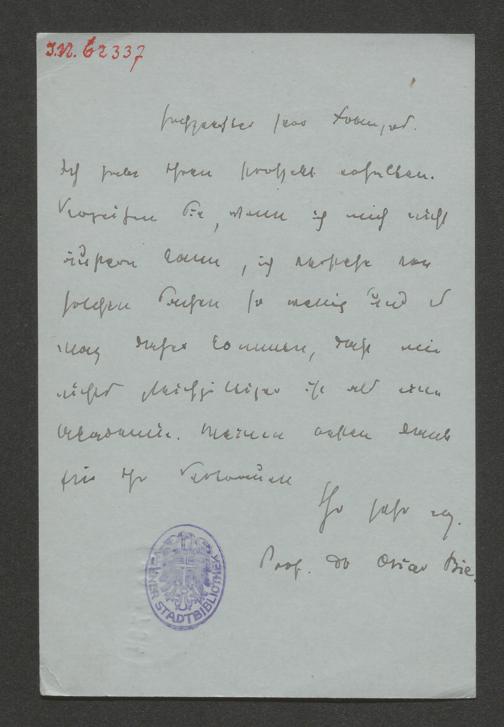 J.N. 62337
Ich habe Ihren Prospekt erhalten.
Verzeihen Sie, wenn ich mich nicht
äußern kann, ich verstehe von
solchen Sachen so wenig und es
mag daher kommen, daß mir
nichts gleichgültiger ist als eine
Akademie. Meinen besten Dank
für Ihr Vertrauen
Ihr sehr erg.
Prof. Dr Oscar Bie.
WIENER STADTBIBLIOTHEK